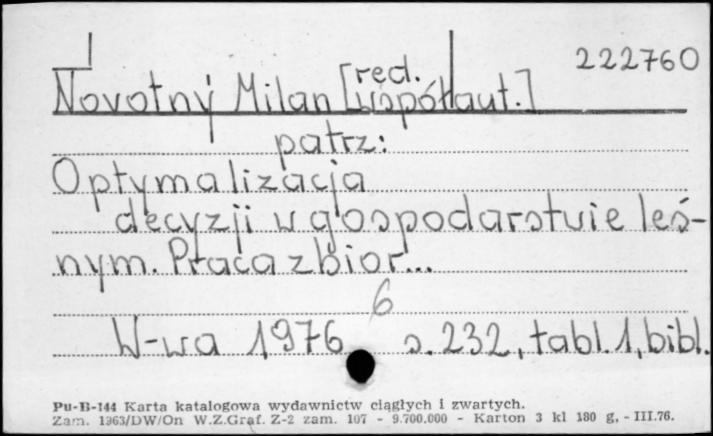 222760
Novotný Milan [red. współaut.]
patrz:
Optymalizacja
decyzji w gospodarstwie leś-
nym. Praca zbior...
6
W-wa 1976 s. 232, tabl. 1, bibl.
Pu-B-144 Karta katalogowa wydawnictw ciągłych i zwartych.
Zam. 1963/DW/On W.Z.Graf. Z-2 zam. 107 - 9.700.000 - Karton 3 kl 180 g. - III.76.